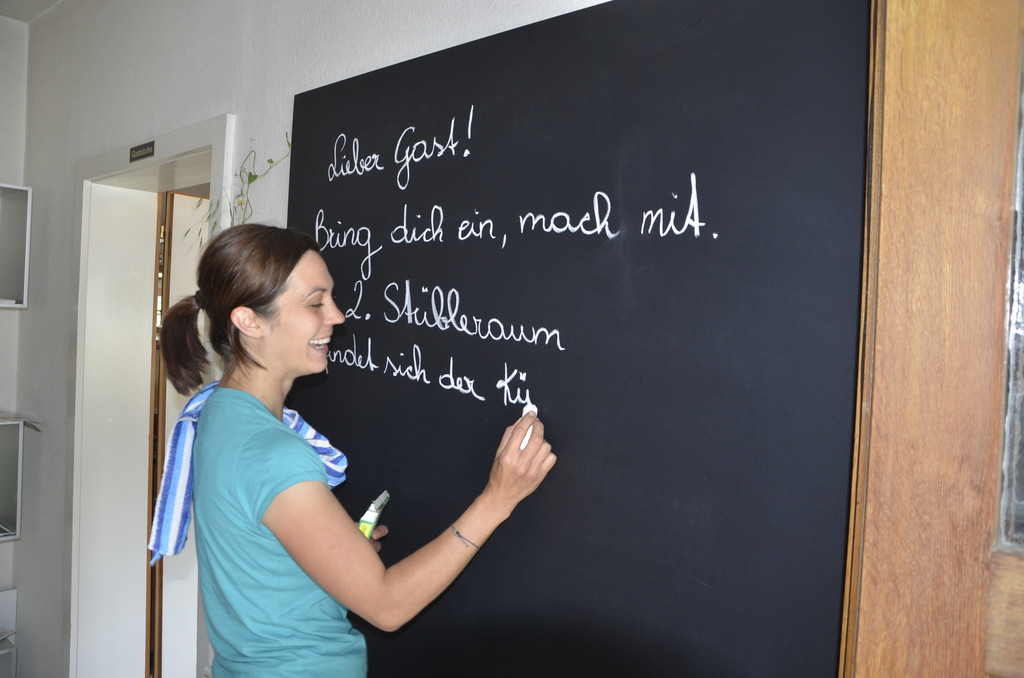 Lieber Gast!
Bring dich ein, mach mit.
2. Stübleraum
ndet sich der Kü